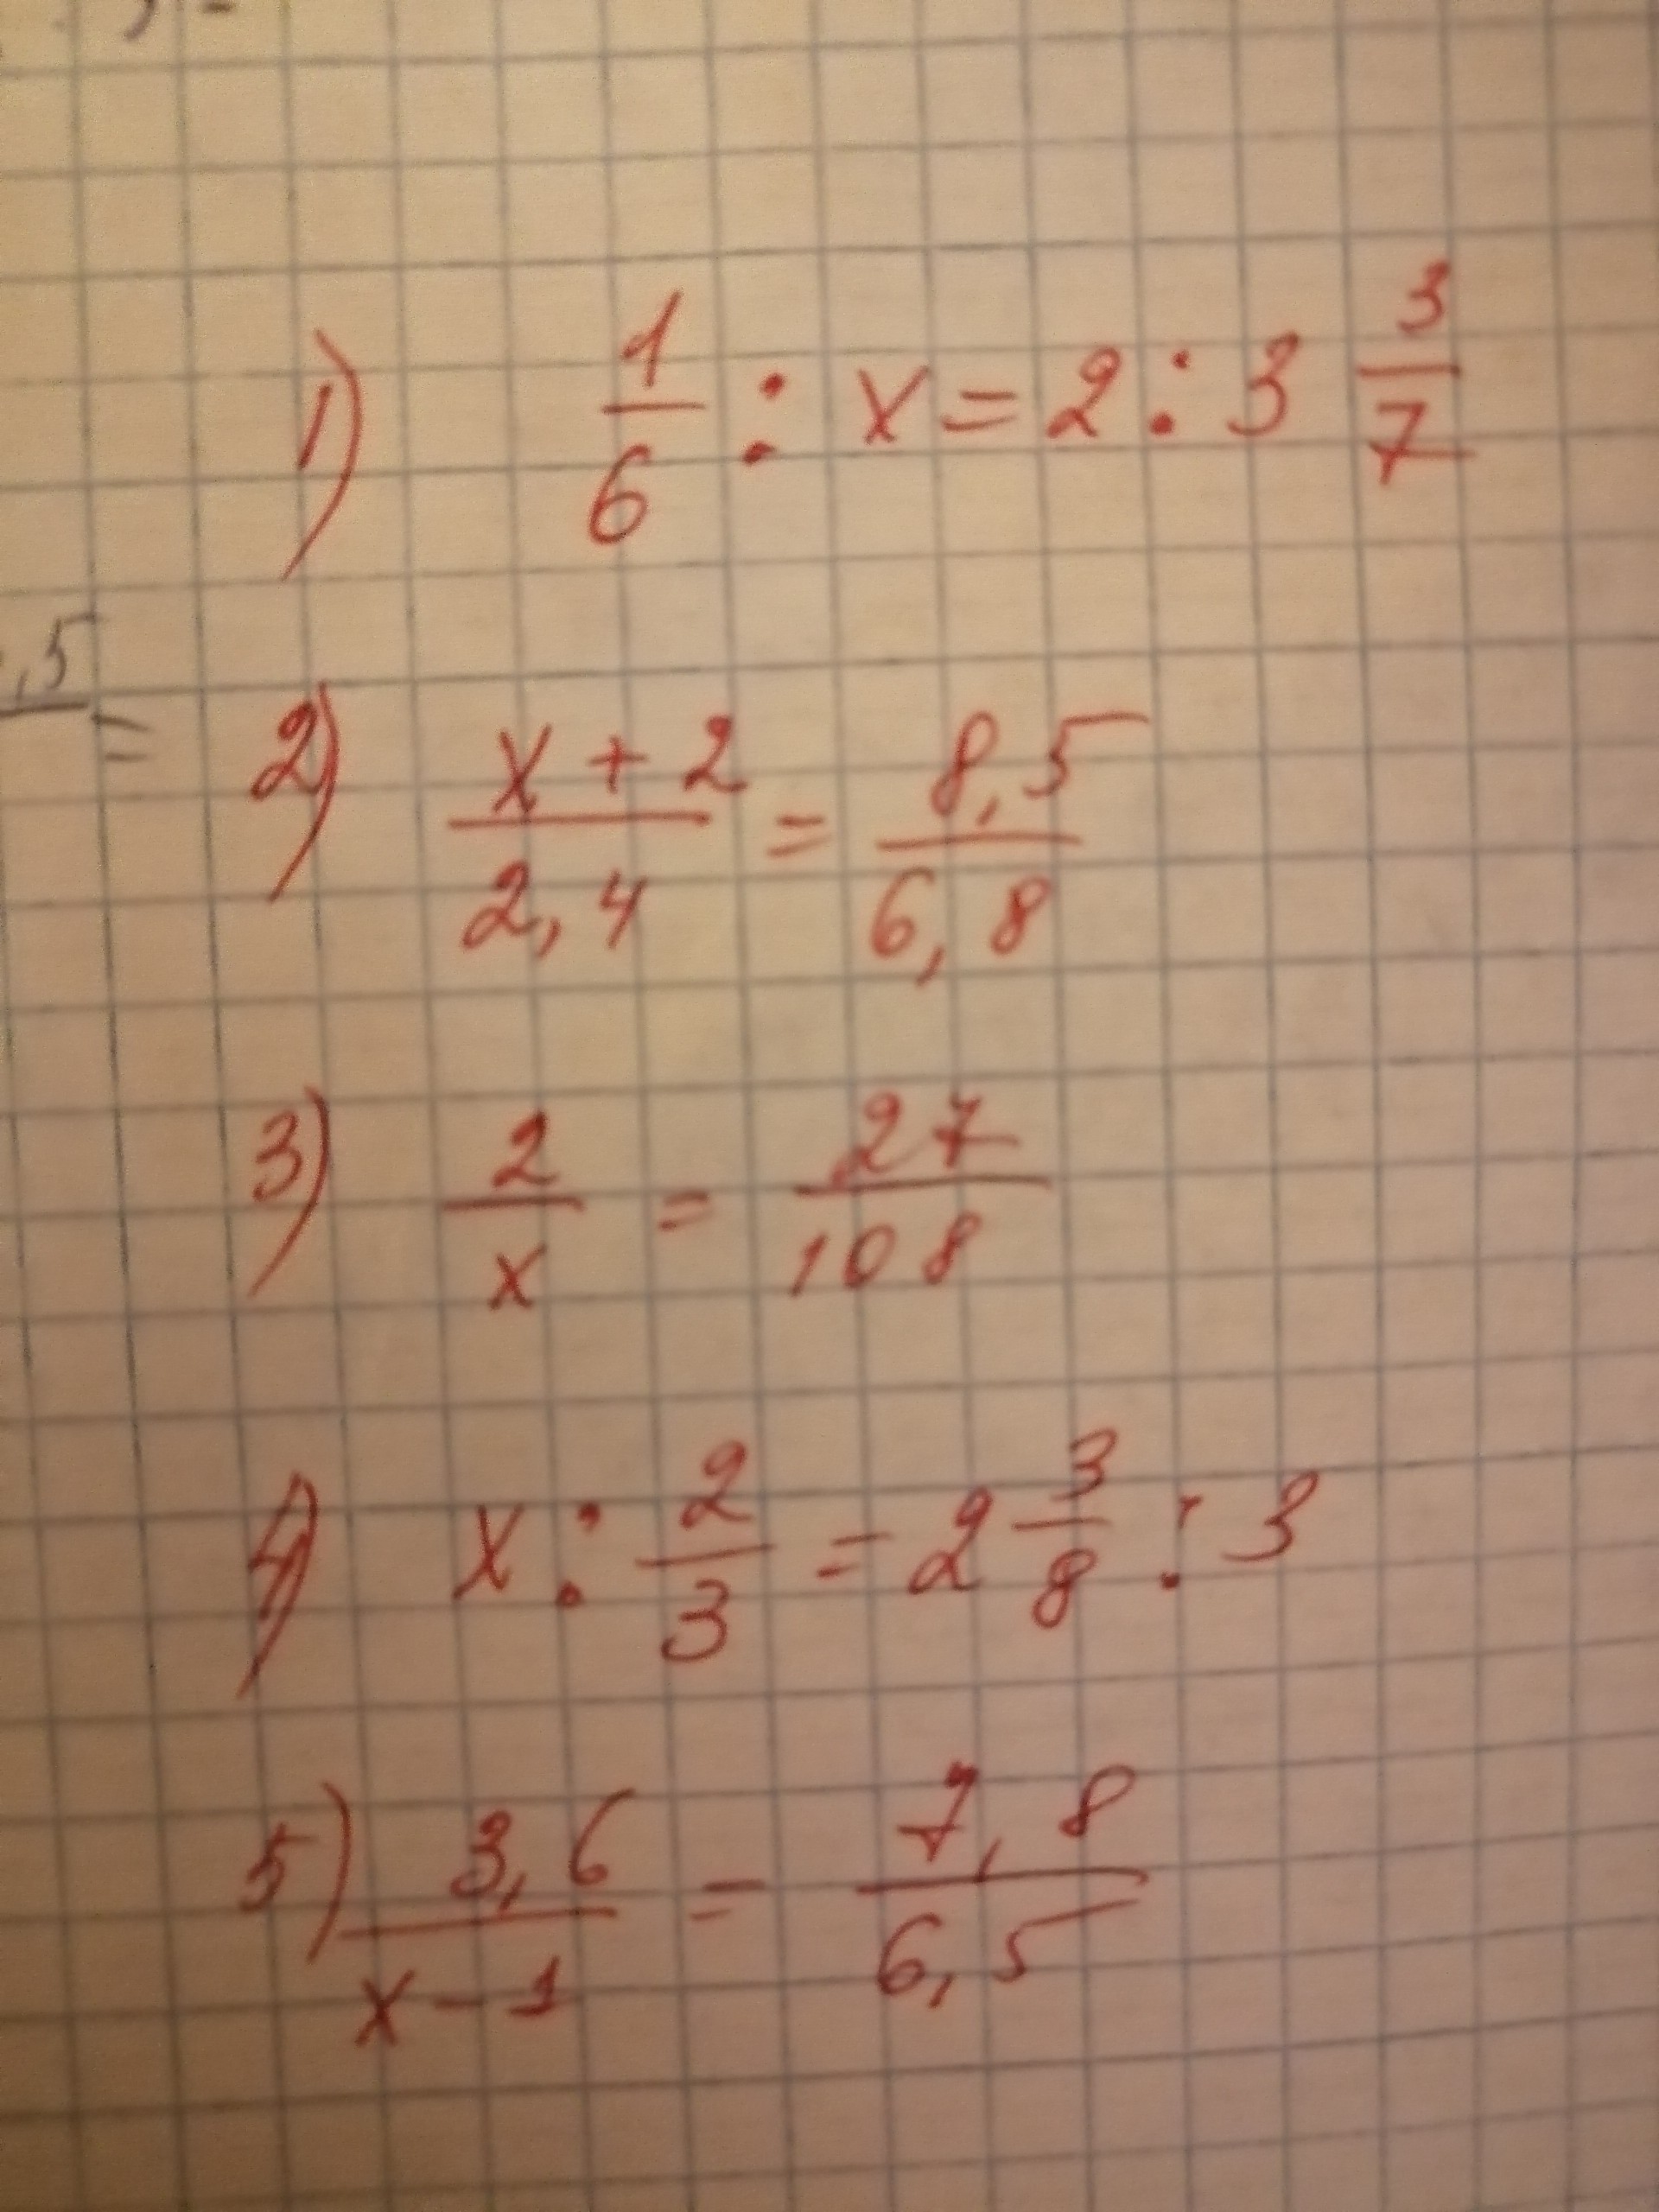 1) 1/6 : x = 2 : 3 3/7
,5 =
2) (x + 2)/2,4 = 8,5/6,8
3) 2/x = 27/108
4) x : 2/3 = 2 3/8 : 3
5) 3,6/(x - 1) = 7,8/6,5